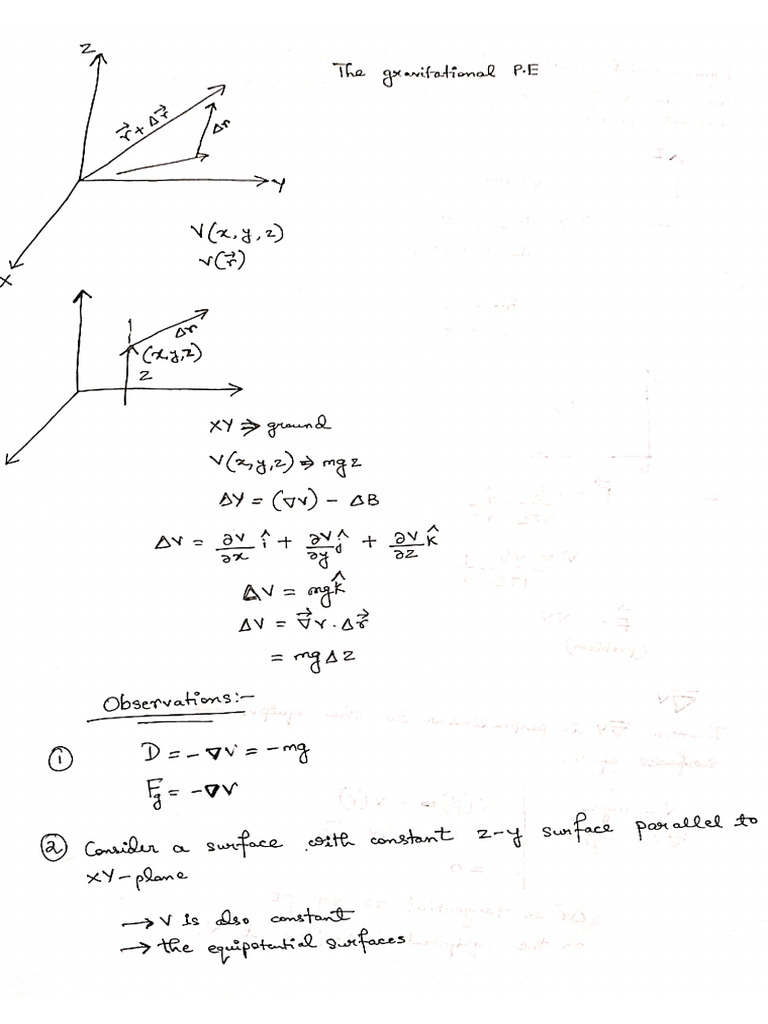 The gravitational P.E
Z
r⃗ + Δr⃗
Δr
Y
X
V(x, y, z)
v(r⃗)
Δr
(x,y,z)
z
XY ⇒ ground
V(x,y,z) ⇒ mgz
ΔY = (∇V) - ΔB
ΔV = ∂V/∂x î + ∂V/∂y ĵ + ∂V/∂z k̂
ΔV = mg k̂
ΔV = ∇⃗v · Δr⃗
= mg Δz
Observations:-
① D = -∇V = -mg
Fg = -∇V
② Consider a surface with constant z-y surface parallel to
XY-plane
→ V is also constant
→ the equipotential surfaces